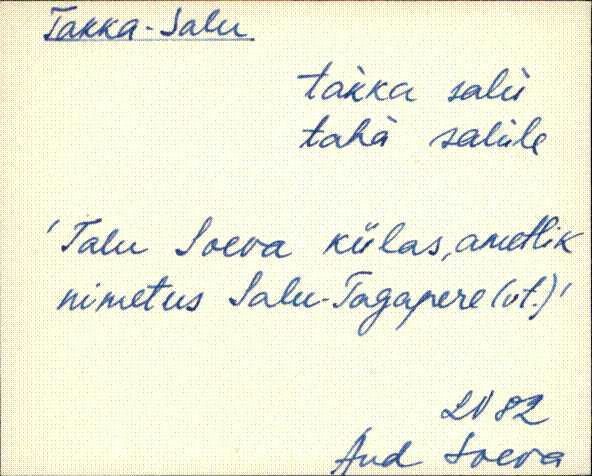 Takka-Salu
takka salu
taha salule
'Talu Soeva külas, ametlik
nimetus Salu-Tagapere (vt.)'
LV 82
Aud Soeva